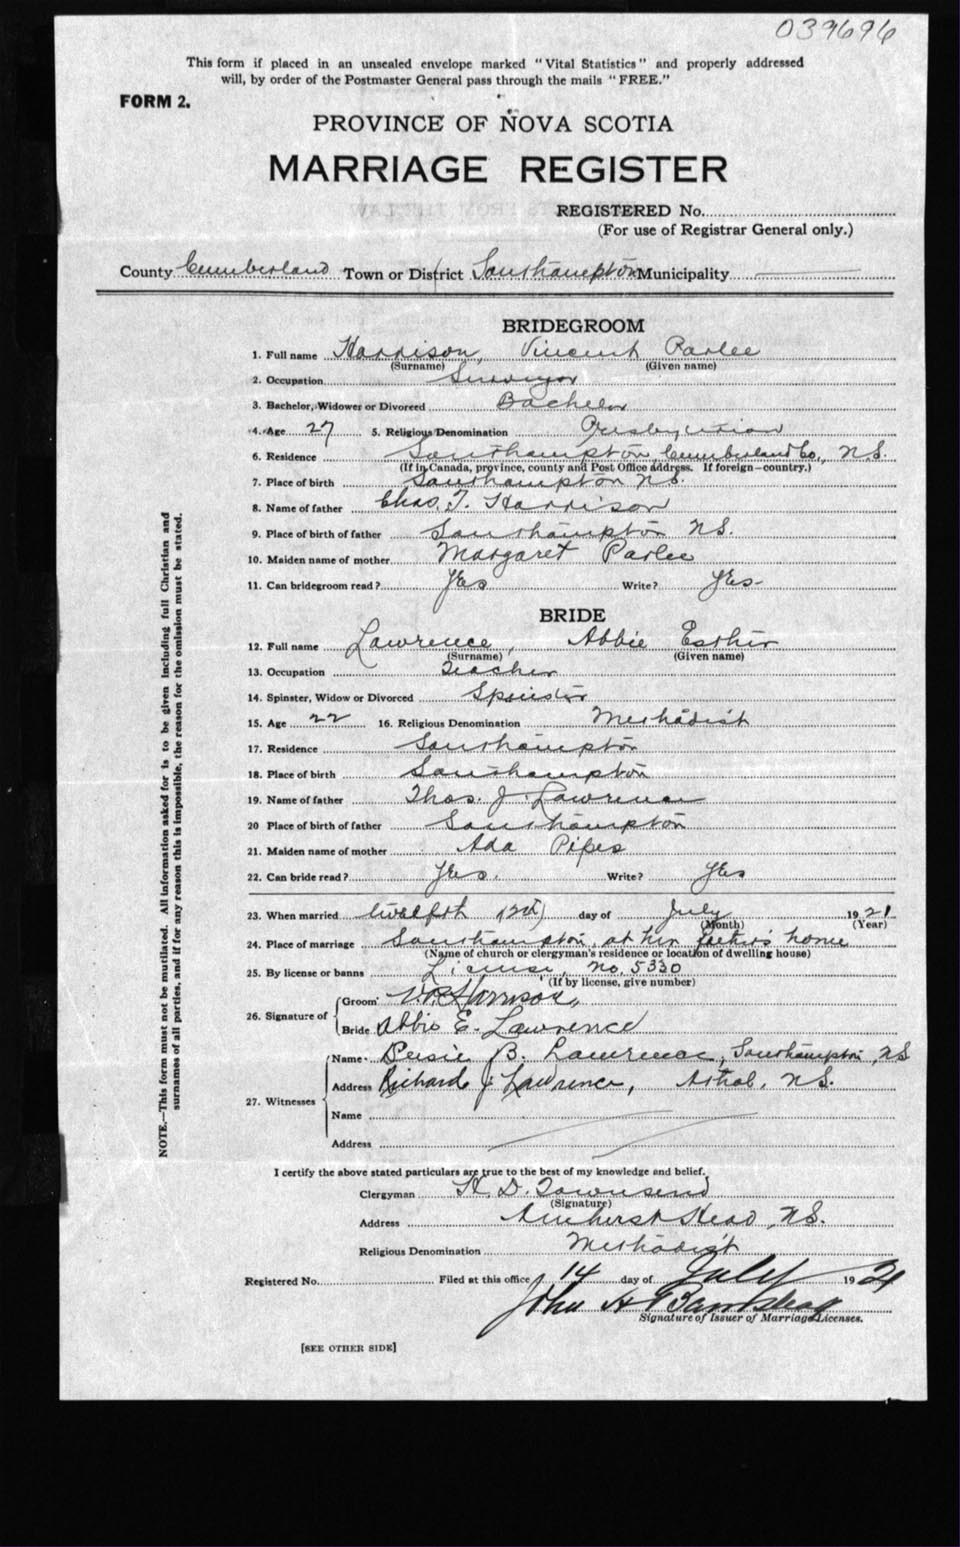 039696
This form if placed in an unsealed envelope marked "Vital Statistics" and properly addressed
will, by order of the Postmaster General pass through the mails "FREE."
FORM 2.
PROVINCE OF NOVA SCOTIA
MARRIAGE REGISTER
REGISTERED No.
(For use of Registrar General only.)
County Cumberland Town or District Southampton Municipality
BRIDEGROOM
1. Full name Harrison, Vincent Parlee
(Surname) (Given name)
2. Occupation Surveyor
3. Bachelor, Widower or Divorced Bachelor
4. Age 27 5. Religious Denomination Presbyterian
6. Residence Southampton, Cumberland Co., N.S.
(If in Canada, province, county and Post Office address. If foreign—country.)
7. Place of birth Southampton N.S.
8. Name of father Chas. T. Harrison
9. Place of birth of father Southampton N.S.
10. Maiden name of mother Margaret Parlee
11. Can bridegroom read? Yes Write? Yes
BRIDE
12. Full name Lawrence, Abbie Esther
(Surname) (Given name)
13. Occupation Teacher
14. Spinster, Widow or Divorced Spinster
15. Age 22 16. Religious Denomination Methodist
17. Residence Southampton
18. Place of birth Southampton
19. Name of father Thos. J. Lawrence
20 Place of birth of father Southampton
21. Maiden name of mother Ada Pipes
22. Can bride read? Yes. Write? Yes
23. When married twelfth (12th) day of July 1921
(Month) (Year)
24. Place of marriage Southampton, at her father's home
(Name of church or clergyman's residence or location of dwelling house)
25. By license or banns License, No. 5330
(If by license, give number)
26. Signature of Groom V. P. Harrison
Bride Abbie E. Lawrence
27. Witnesses Name B. Lawrence, Southampton, N.S
Address Richard J Lawrence, Athol, N.S.
Name
Address
I certify the above stated particulars are true to the best of my knowledge and belief.
Clergyman H. D. Townsend
(Signature)
Address Amherst Head, N.S.
Religious Denomination Methodist
Registered No. Filed at this office 14 day of July 1921
John H Bankshead
Signature of Issuer of Marriage Licenses.
[SEE OTHER SIDE]
NOTE.—This form must not be mutilated. All information asked for is to be given including full Christian and
surnames of all parties, and if for any reason this is impossible, the reason for the omission must be stated.